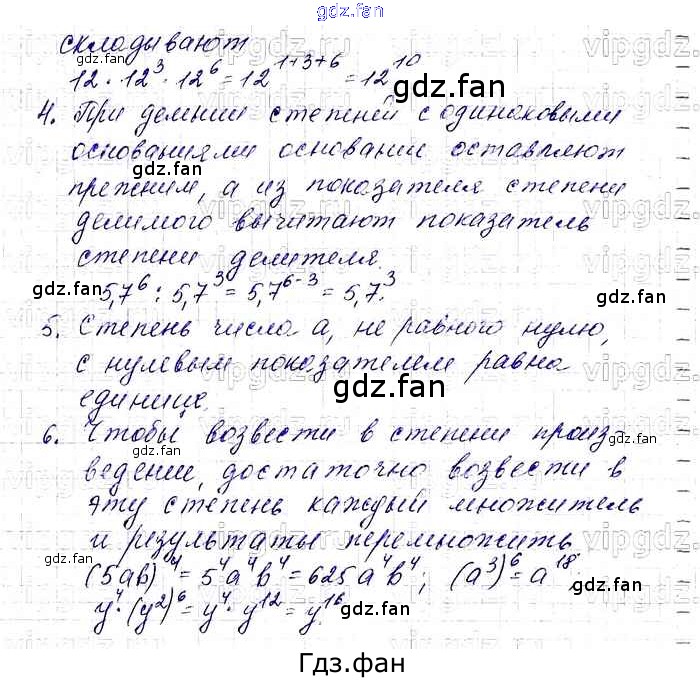 gdz.fan
складывают
12 · 12³ · 12⁶ = 12¹⁺³⁺⁶ = 12¹⁰
gdz.fan
4. При делнии степеней с одинаковыми
основаниями основании оставляют
прежним, а из показателя степени
делимого вычитают показатель
степени делителя.
5,7⁶ : 5,7³ = 5,7⁶⁻³ = 5,7³.
gdz.fan gdz.fan
5. Степень числа a, не равного нулю,
с нулевым показателем равна
gdz.fan
единице.
6. Чтобы возвести в степени произ-
ведении, достаточно возвести в
эту степень каждый множитель
и результаты перемножить
gdz.fan gdz.fan
(5ab)⁴ = 5⁴a⁴b⁴ = 625a⁴b⁴; (a³)⁶ = a¹⁸;
y⁴ · (y²)⁶ = y⁴ · y¹² = y¹⁶.
Гдз.фан